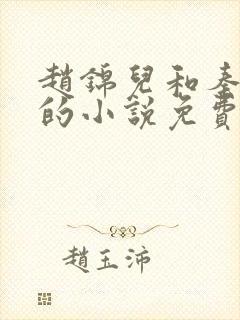 趙錦兒和秦
的小說免費
趙玉沛